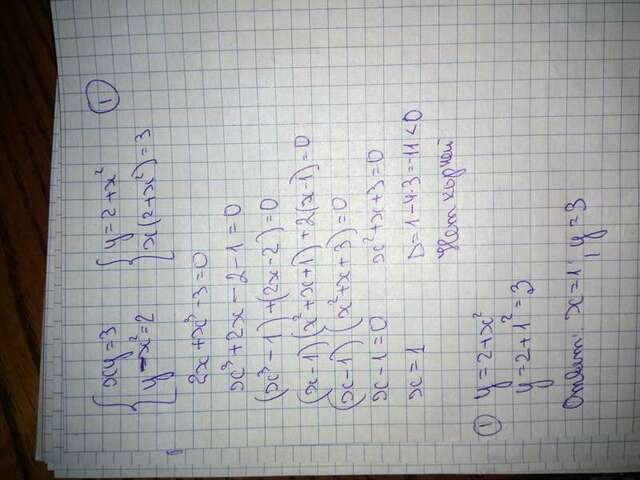 xy=3 y=2+x² 1
y-x²=2 x(2+x²)=3
2x+x³-3=0
x³+2x-2-1=0
(x³-1)+(2x-2)=0
(x-1)(x²+x+1)+2(x-1)=0
(x-1)(x²+x+3)=0
x-1=0 x²+x+3=0
x=1 D=1-4·3=-11<0
Нет корней
1 y=2+x²
y=2+1²=3
Ответ: x=1; y=3